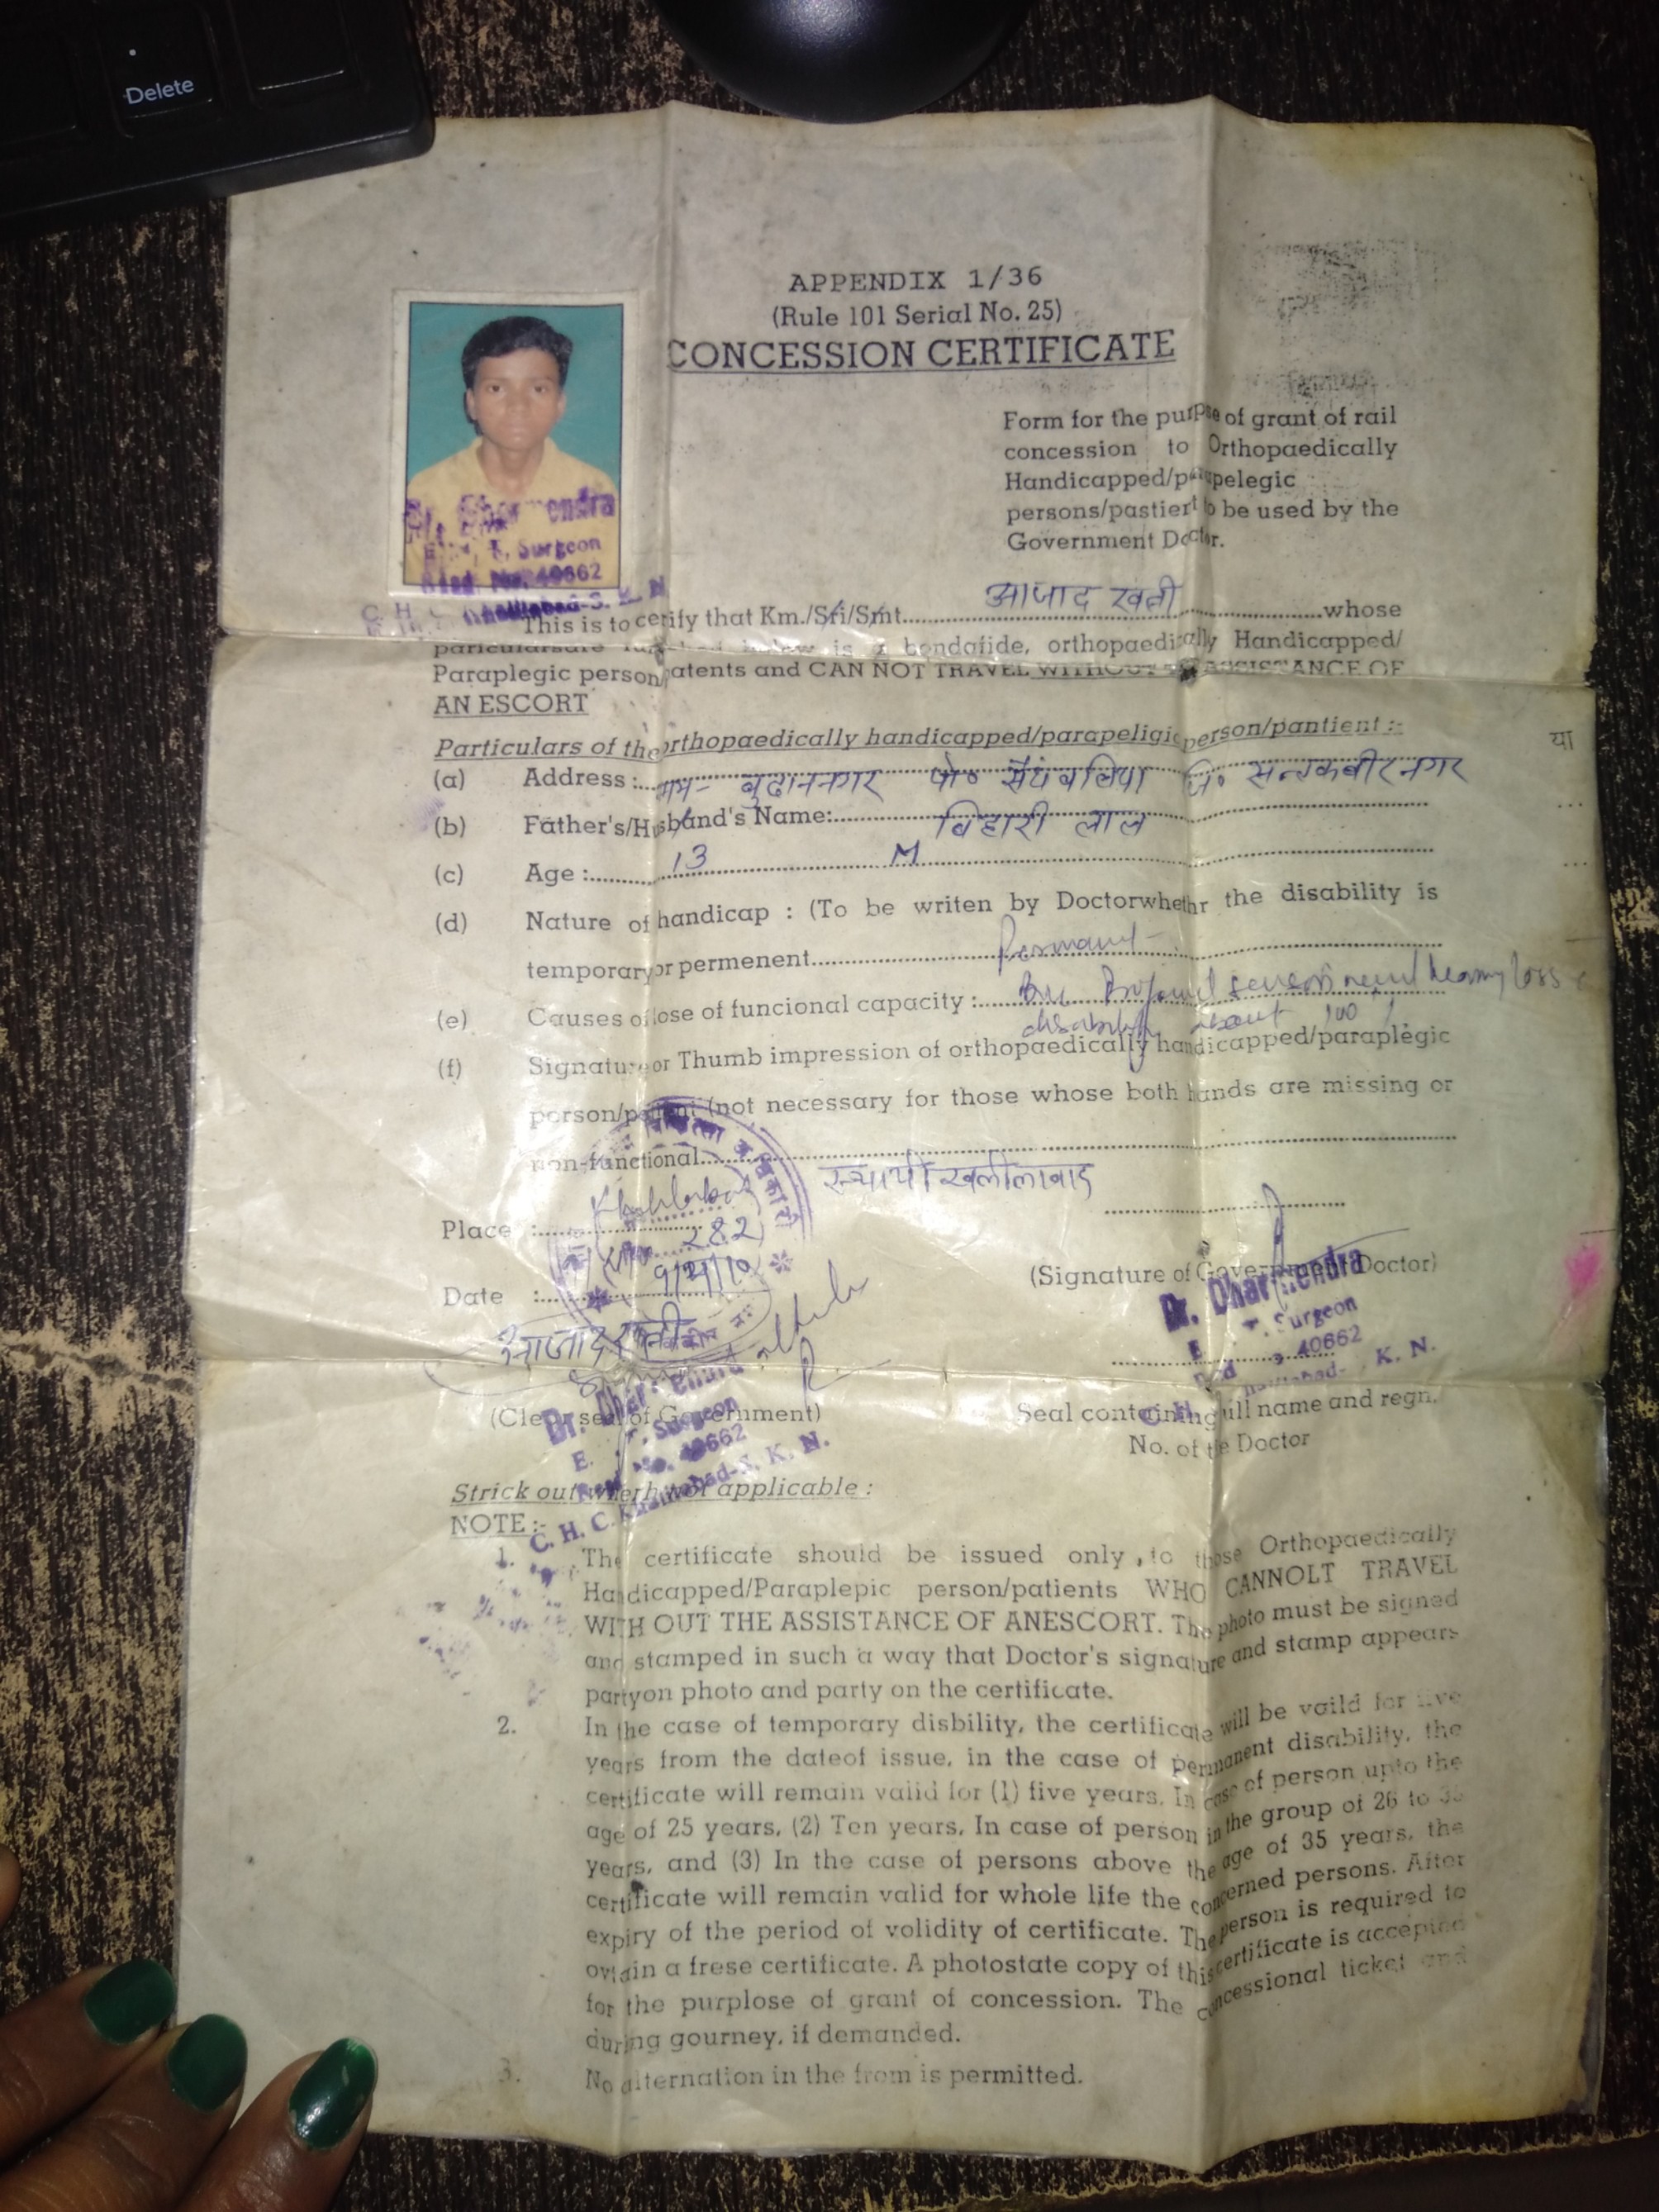 Delete
APPENDIX 1/36
(Rule 101 Serial No. 25)
CONCESSION CERTIFICATE
Form for the purpse of grant of rail
concession to Orthopaedically
Handicapped/parapelegic
persons/pastiert to be used by the
Government Doctor.
Dr. Dharmendra
E. N. T. Surgeon
Read. No. 40662
C. H. C. Khalilabad-S. K. N.
This is to cerify that Km./Sri/Smt. आजाद खली whose
below is a bondafide, orthopaedically Handicapped/
Paraplegic person/patents and CAN NOT TRAVEL WITHOUT ASSISTANCE OF
AN ESCORT
Particulars of the orthopaedically handicapped/parapeligic person/pantient :-
(a) Address : ग्राम- बूदाननगर पो० सैंथवलिया जि० सन्तकबीरनगर
या
(b) Father's/Husband's Name: बिहारी लाल
(c) Age : 13 M
(d) Nature of handicap : (To be writen by Doctorwhethr the disability is
temporary or permenent. Permanent
(e) Causes of lose of funcional capacity : Profound hearing loss
disability about 100
(f) Signature or Thumb impression of orthopaedically handicapped/paraplegic
person/patient (not necessary for those whose both hands are missing or
non-functional.
स्थायी खलीलाबाद
Place : Khalilabad
282
Date : 9/2/10
आजाद खली
(Signature of Government Doctor)
Dr. Dharmendra
E. T. Surgeon
40662
K. N.
(Cler seal of Government)
Dr. Dharmendra
E. T. Surgeon
Read No. 40662
C. H. C. Khalilabad-S. K. N.
Seal containing full name and regn.
No. of the Doctor
Strick out wherh not applicable :
NOTE :-
1. The certificate should be issued only , to those Orthopaedically
Handicapped/Paraplepic person/patients WHO CANNOLT TRAVEL
WITH OUT THE ASSISTANCE OF ANESCORT. The photo must be signed
and stamped in such a way that Doctor's signature and stamp appears
partyon photo and party on the certificate.
2. In the case of temporary disbility, the certificate will be vaild for five
years from the dateof issue, in the case of permanent disability, the
certificate will remain valid for (1) five years. In case of person upto the
age of 25 years, (2) Ten years. In case of person in the group of 26 to 35
years, and (3) In the case of persons above the age of 35 years, the
certificate will remain valid for whole life the concerned persons. After
expiry of the period of validity of certificate. The person is required to
ovtain a frese certificate. A photostate copy of this certificate is accepted
for the purplose of grant of concession. The concessional ticket and
during gourney, if demanded.
3. No alternation in the from is permitted.